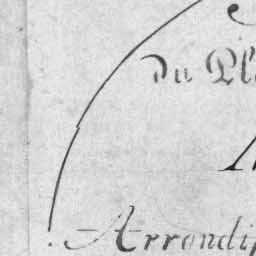 du Pl
Arrondis